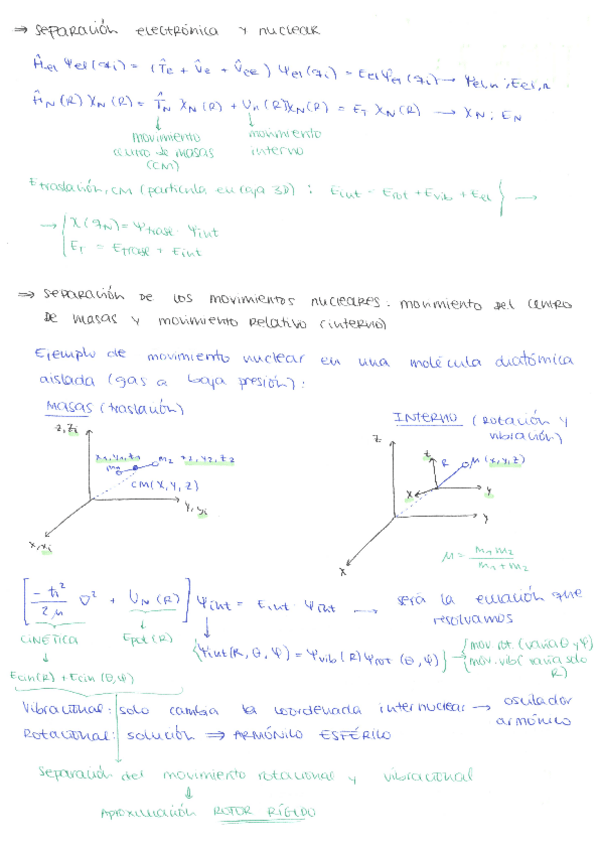 ⇒ separación electrónica y nuclear
Ĥel Ψel(qi) = (T̂e + V̂e + V̂ee) Ψel(qi) = Eel Ψel(qi) → Ψel,n ; Eel,n
ĤN(R) XN(R) = T̂N XN(R) + Un(R)XN(R) = ET XN(R) → XN ; EN
movimiento centro de masas (CM)
movimiento interno
Etraslación, CM (partícula en caja 3D) ; Eint = Erot + Evib + Eel } →
→ { X(qN) = Ψtrasl · Ψint
ET = Etrasl + Eint
⇒ separación de los movimientos nucleares: movimiento del centro
de masas y movimiento relativo (interno)
Ejemplo de movimiento nuclear en una molécula diatómica
aislada (gas a baja presión):
MASAS (traslación)
INTERNO (rotación y vibración)
z, zi
x1, y1, z1
m1
m2
x2, y2, z2
CM(X, Y, Z)
y, yi
x, xi
z
z
R
μ (x, y, z)
x
y
y
x
μ = m1 m2 / m1 + m2
[ -ħ² / 2μ ∇² + UN(R) ] Ψint = Eint Ψint → será la ecuación que
resolvamos
CINÉTICA
Epot(R)
{Ψint(R, θ, φ) = Ψvib(R) Ψrot (θ, φ)} → { mov. rot. (varía θ y φ)
mov. vib (varía solo R)
Ecin(R) + Ecin (θ, φ)
Vibracional: solo cambia la coordenada internuclear → oscilador
armónico
Rotacional: solución ⇒ ARMÓNICO ESFÉRICO
Separación del movimiento rotacional y vibracional
Aproximación ROTOR RÍGIDO